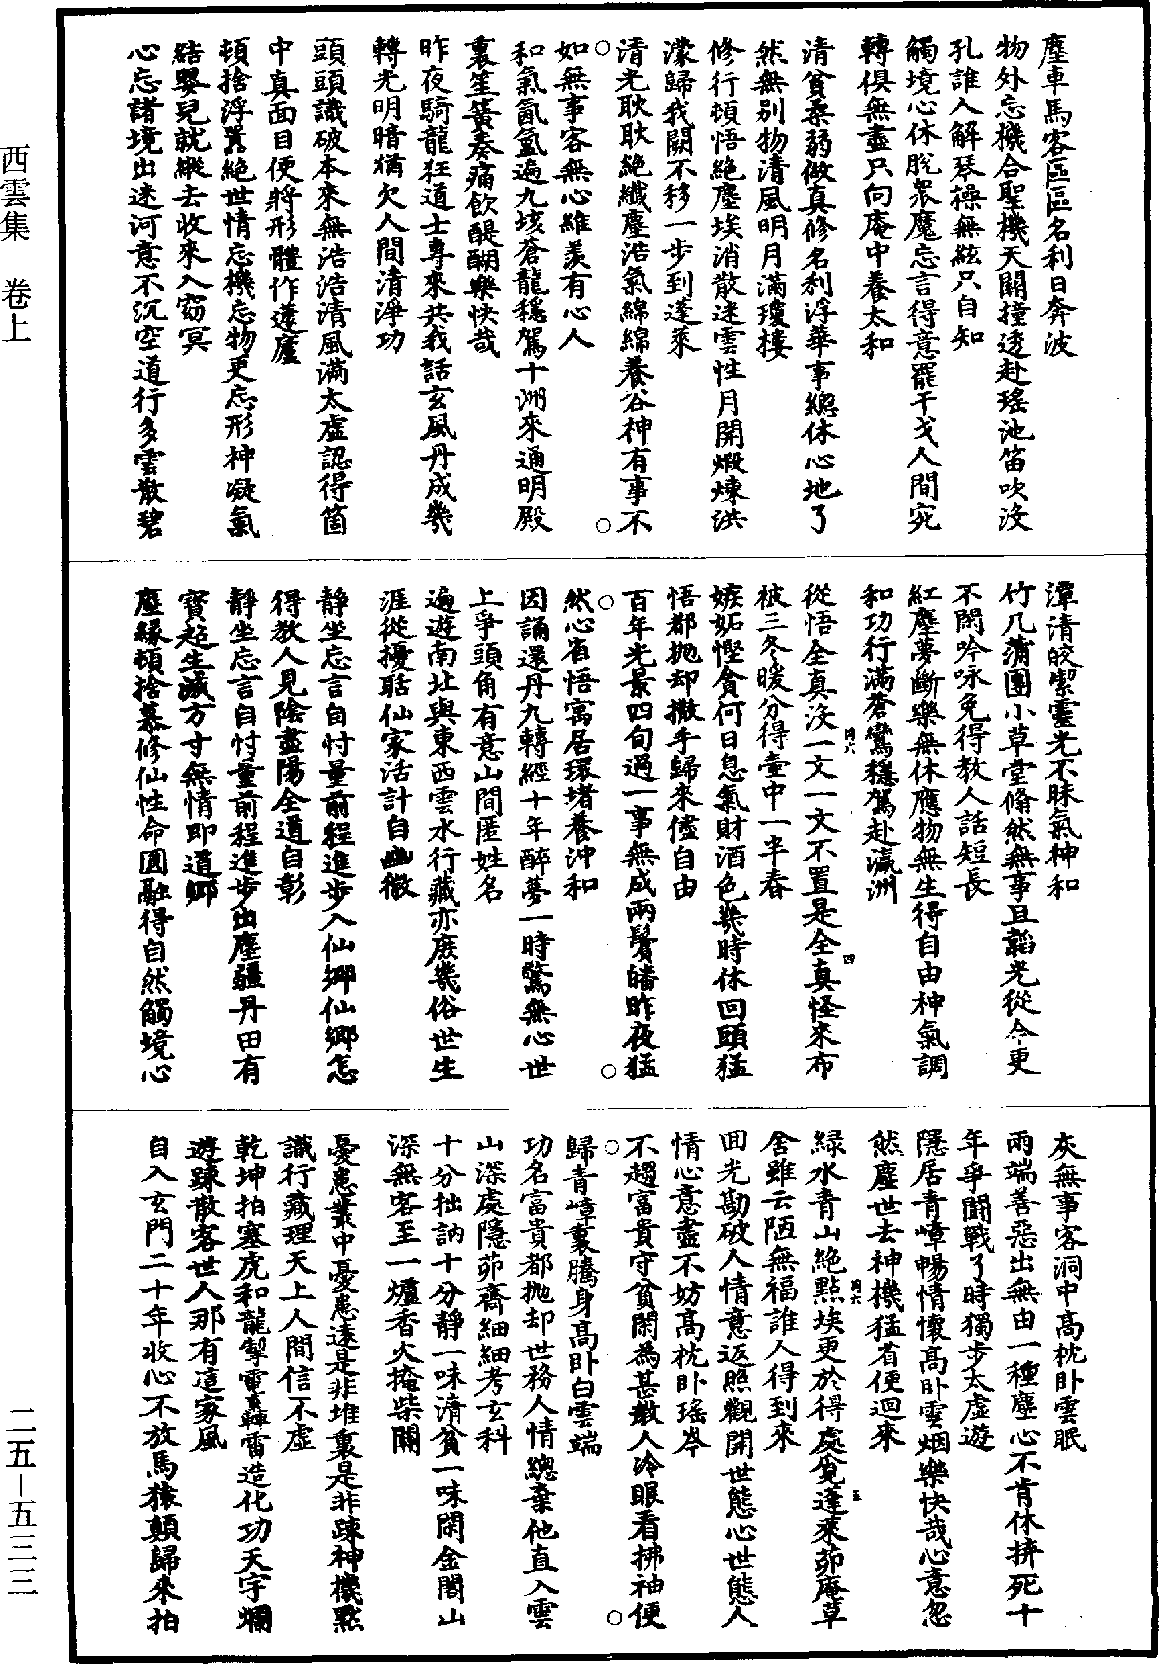 塵車馬客區區名利日奔波
物外忘機合聖機天關撞透赴瑤池笛吹沒
孔誰人解琴操無絃只自知
觸境心休脫眾魔忘言得意罷干戈人間宛
轉俱無盡只向庵中養太和
清貧柔弱做真修名利浮華事總休心地了
然無別物清風明月滿瓊樓
修行頓悟絕塵埃消散迷雲性月開煅煉洪
濛歸我闕不移一步到蓬萊
清光耿耿絕纖塵浩氣綿綿養谷神有事不
如無事客無心維羨有心人
和氣氤氳遍九垓蒼龍穩駕十洲來通明殿
裏笙簧奏痛飲醍醐樂快哉
昨夜騎龍狂道士專來共我話玄風丹成幾
轉光明暗猶欠人間清淨功
頭頭識破本來無浩浩清風滿太虛認得箇
中真面目便將形體作蘧廬
頓捨浮囂絕世情忘機忘物更忘形神凝氣
結嬰兒就縱去收來入窈冥
心忘諸境出迷河意不沉空道行多雲散碧
潭清皎潔靈光不昧氣神和
竹几蒲團小草堂翛然無事且韜光從今更
不閑吟咏免得教人話短長
紅塵夢斷樂無休應物無生得自由神氣調
和功行滿蒼鸞穩駕赴瀛洲
從悟全真沒一文一文不置是全真怪來布
被三冬暖分得壺中一半春
嫉妬慳貪何日息氣財酒色幾時休回頭猛
悟都拋却撒手歸來儘自由
百年光景四旬過一事無成兩鬢皤昨夜猛
然心省悟寓居環堵養沖和
因誦還丹九轉經十年醉夢一時驚無心世
上爭頭角有意山間匿姓名
遍遊南北與東西雲水行藏亦庶幾俗世生
涯從擾聒仙家活計自幽微
靜坐忘言自忖量前程進步入仙鄉仙鄉怎
得教人見陰盡陽全道自彰
靜坐忘言自忖量前程進步出塵疆丹田有
寶超生滅方寸無情即道鄉
塵緣頓捨慕修仙性命圓融得自然觸境心
灰無事客洞中高枕卧雲眠
兩端善惡出無由一種塵心不肯休拚死十
年爭鬭戰了時獨步太虛遊
隱居青嶂暢情懷高卧雲烟樂快哉心意忽
然塵世去神機猛省便迴來
綠水青山絕點埃更於得處覓蓬萊茆庵草
舍雖云陋無福誰人得到來
回光勘破人情意返照觀開世態心世態人
情心意盡不妨高枕卧瑤岑
不趨富貴守貧閑為甚教人冷眼看拂袖便
歸青嶂裏騰身高卧白雲端
功名富貴都拋却世務人情總棄他直入雲
山深處隱茆齋細細考玄科
十分拙訥十分靜一味清貧一味閑金閣山
深無客至一爐香火掩柴關
憂患叢中憂患遠是非堆裏是非疎神機點
識行藏理天上人間信不虛
乾坤拍塞虎和龍掣電轟雷造化功天宇爛
遊踈散客世人那有這家風
自入玄門二十年收心不放馬猿顛歸來拍
西雲集 卷上
二五－五三三